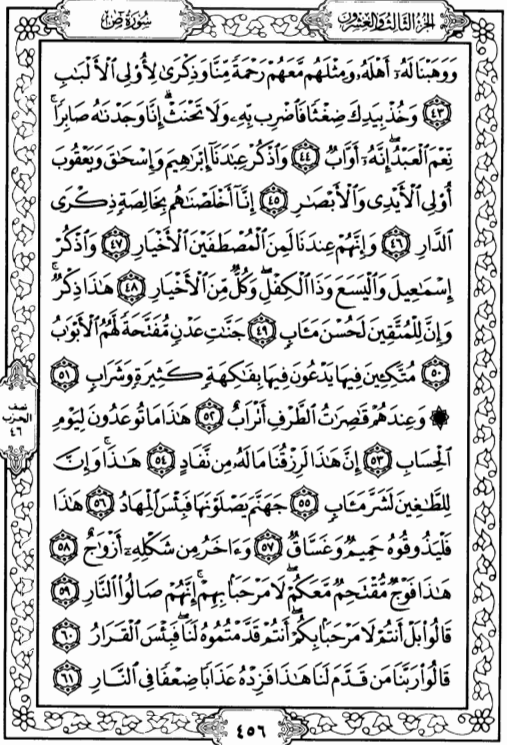 سُورَةُ ص
الجزء الثالث والعشرون
وَوَهَبْنَا لَهُۥٓ أَهْلَهُۥ وَمِثْلَهُم مَّعَهُمْ رَحْمَةً مِّنَّا وَذِكْرَىٰ لِأُو۟لِى ٱلْأَلْبَٰبِ
٤٣ وَخُذْ بِيَدِكَ ضِغْثًا فَٱضْرِب بِّهِۦ وَلَا تَحْنَثْ ۗ إِنَّا وَجَدْنَٰهُ صَابِرًا ۚ
نِّعْمَ ٱلْعَبْدُ ۖ إِنَّهُۥٓ أَوَّابٌ ٤٤ وَٱذْكُرْ عِبَٰدَنَآ إِبْرَٰهِيمَ وَإِسْحَٰقَ وَيَعْقُوبَ
أُو۟لِى ٱلْأَيْدِى وَٱلْأَبْصَٰرِ ٤٥ إِنَّآ أَخْلَصْنَٰهُم بِخَالِصَةٍ ذِكْرَى
ٱلدَّارِ ٤٦ وَإِنَّهُمْ عِندَنَا لَمِنَ ٱلْمُصْطَفَيْنَ ٱلْأَخْيَارِ ٤٧ وَٱذْكُرْ
إِسْمَٰعِيلَ وَٱلْيَسَعَ وَذَا ٱلْكِفْلِ ۖ وَكُلٌّ مِّنَ ٱلْأَخْيَارِ ٤٨ هَٰذَا ذِكْرٌ ۚ
وَإِنَّ لِلْمُتَّقِينَ لَحُسْنَ مَـَٔابٍ ٤٩ جَنَّٰتِ عَدْنٍ مُّفَتَّحَةً لَّهُمُ ٱلْأَبْوَٰبُ
٥٠ مُتَّكِـِٔينَ فِيهَا يَدْعُونَ فِيهَا بِفَٰكِهَةٍ كَثِيرَةٍ وَشَرَابٍ ٥١
۞ وَعِندَهُمْ قَٰصِرَٰتُ ٱلطَّرْفِ أَتْرَابٌ ٥٢ هَٰذَا مَا تُوعَدُونَ لِيَوْمِ
ٱلْحِسَابِ ٥٣ إِنَّ هَٰذَا لَرِزْقُنَا مَا لَهُۥ مِن نَّفَادٍ ٥٤ هَٰذَا ۚ وَإِنَّ
لِلطَّٰغِينَ لَشَرَّ مَـَٔابٍ ٥٥ جَهَنَّمَ يَصْلَوْنَهَا فَبِئْسَ ٱلْمِهَادُ ٥٦ هَٰذَا
فَلْيَذُوقُوهُ حَمِيمٌ وَغَسَّاقٌ ٥٧ وَءَاخَرُ مِن شَكْلِهِۦٓ أَزْوَٰجٌ ٥٨
هَٰذَا فَوْجٌ مُّقْتَحِمٌ مَّعَكُمْ ۖ لَا مَرْحَبًۢا بِهِمْ ۚ إِنَّهُمْ صَالُوا۟ ٱلنَّارِ ٥٩
قَالُوا۟ بَلْ أَنتُمْ لَا مَرْحَبًۢا بِكُمْ ۖ أَنتُمْ قَدَّمْتُمُوهُ لَنَا ۖ فَبِئْسَ ٱلْقَرَارُ ٦٠
قَالُوا۟ رَبَّنَا مَن قَدَّمَ لَنَا هَٰذَا فَزِدْهُ عَذَابًا ضِعْفًا فِى ٱلنَّارِ ٦١
نصف
الحزب
٤٦
٤٥٦